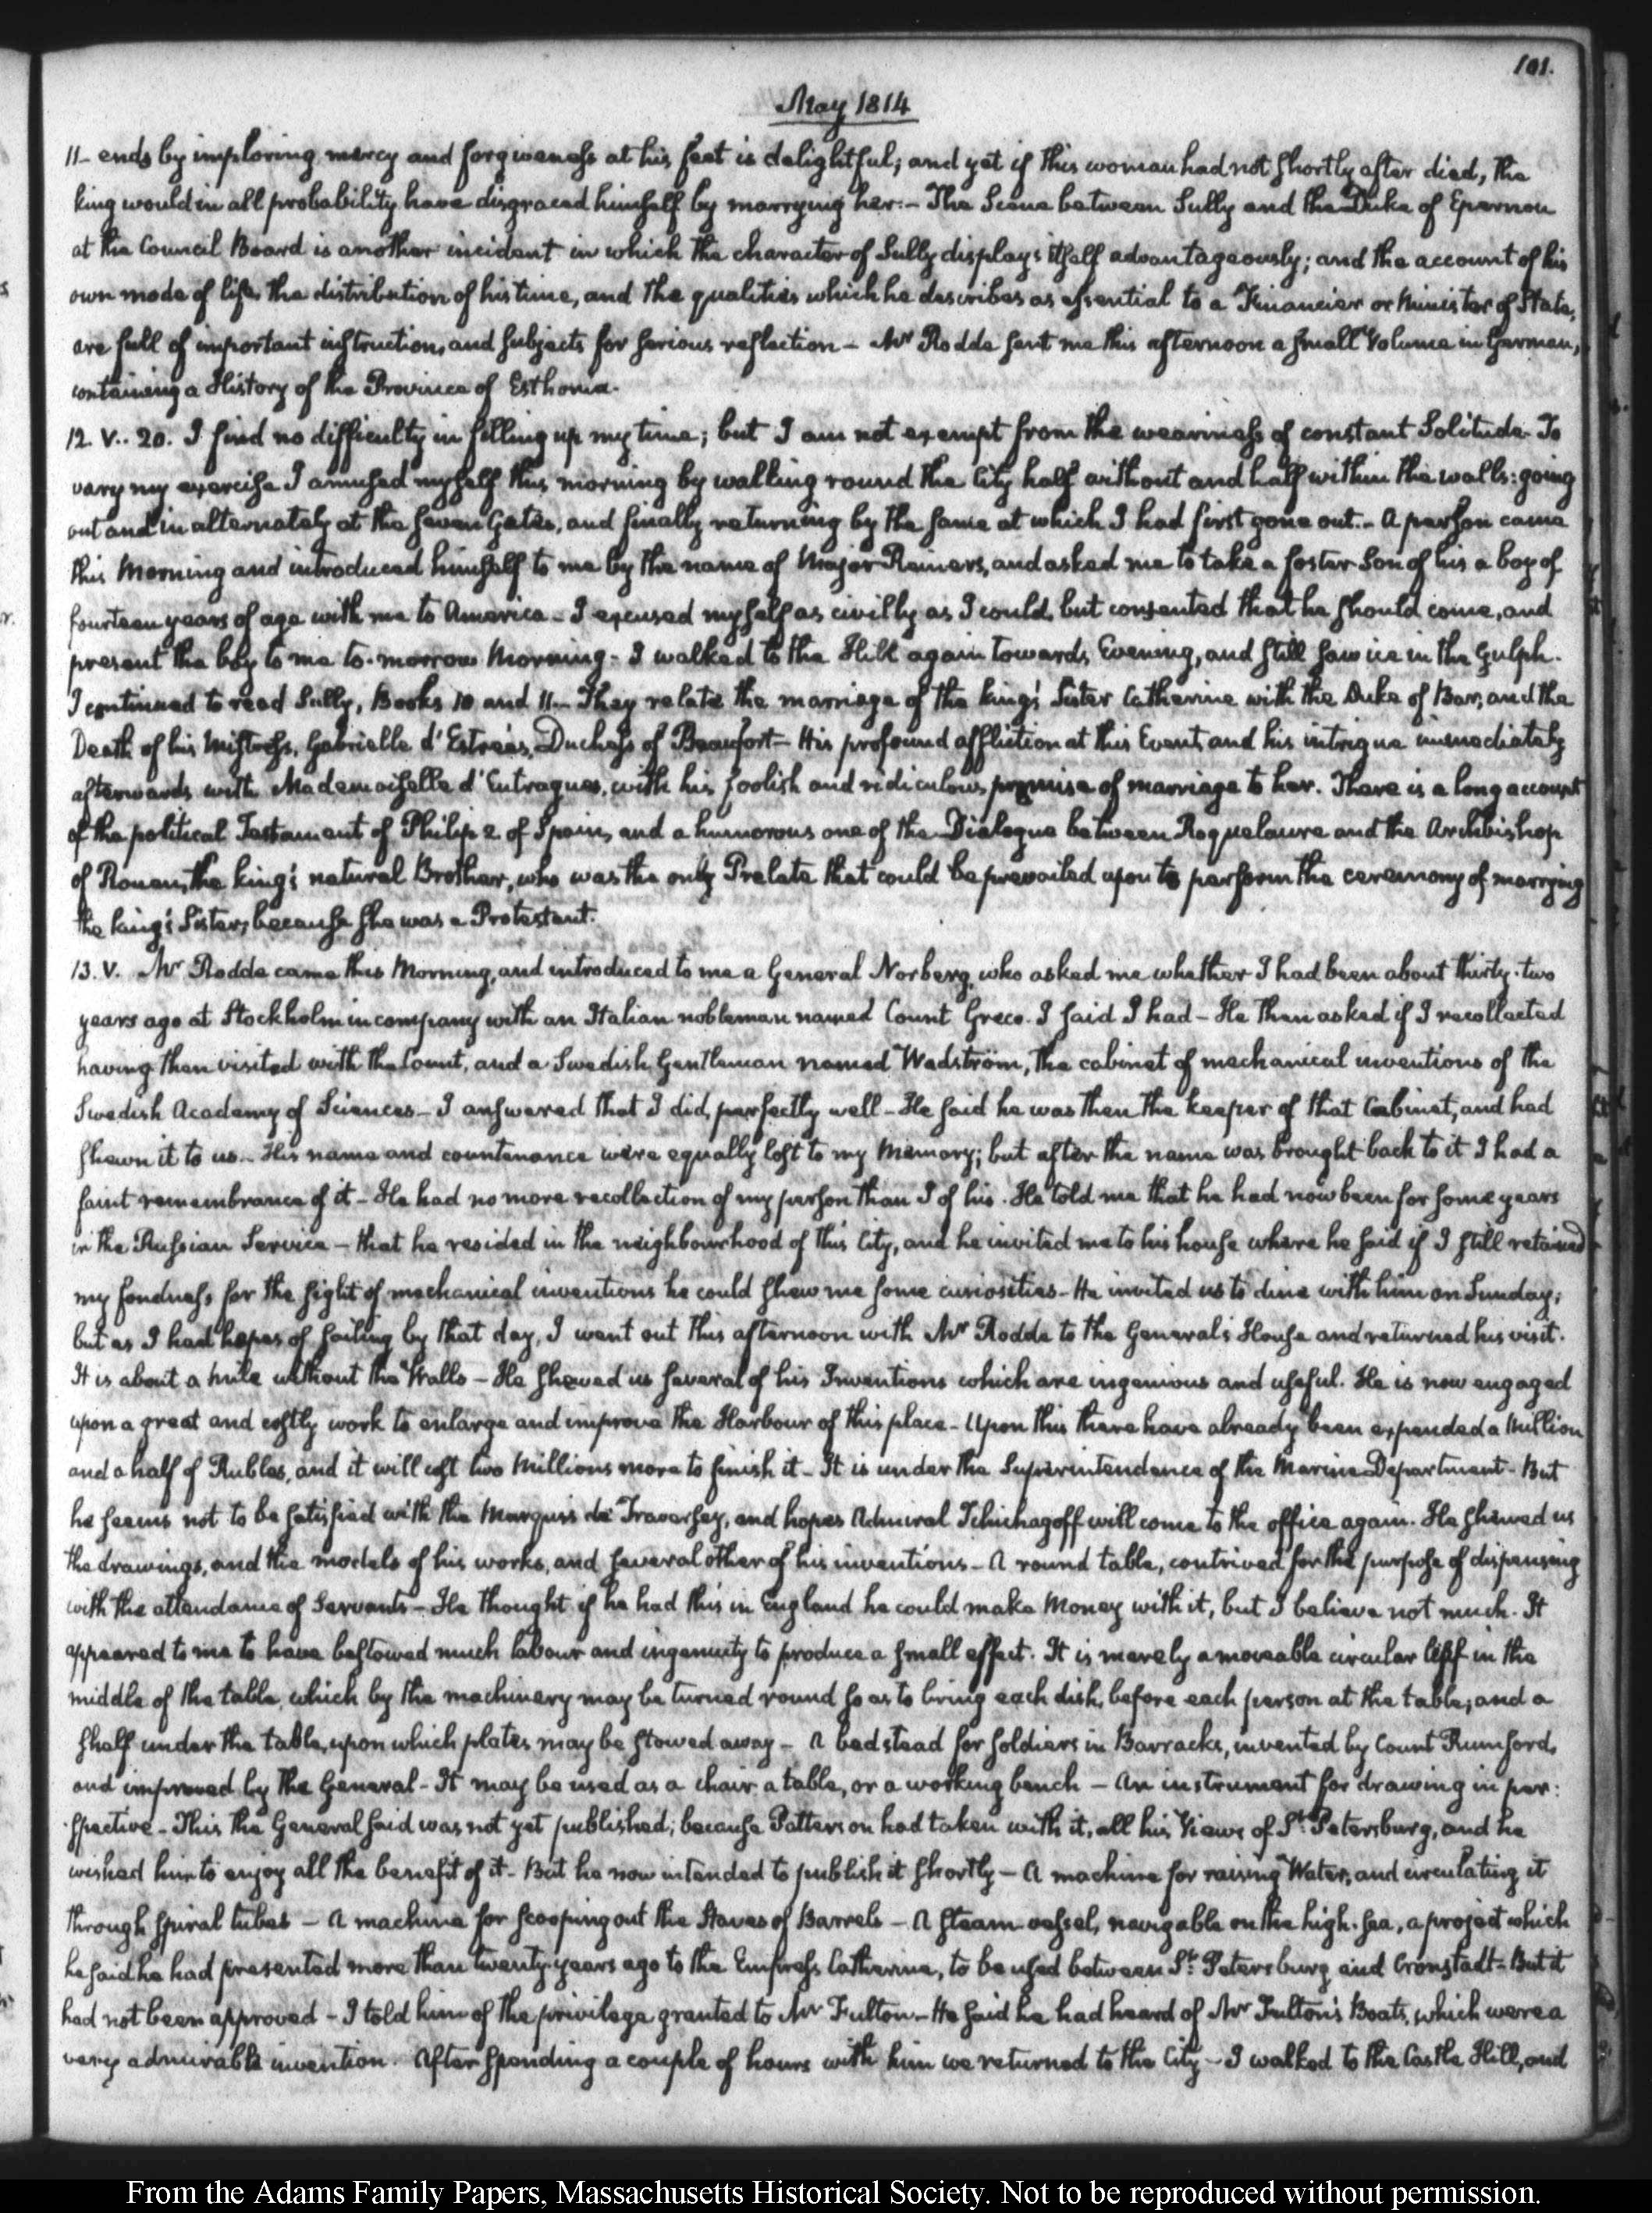 101.
May 1814
11– ends by imploring mercy and forgiveness at his feet is delightful; and yet if this woman had not shortly after died, the
king would in all probability have disgraced himself by marrying her.– The Scene between Sully and the Duke of Epernon
at the Council Board is another incident in which the character of Sully displays itself advantageously; and the account of his
own mode of life, the distribution of his time, and the qualities which he describes as essential to a Financier or Minister of State,
are full of important instruction, and subjects for serious reflection – Mr Rodde sent me this afternoon a small Volume in German,
containing a History of the Province of Esthonia.
12. V.. 20. I find no difficulty in filling up my time; but I am not exempt from the weariness of constant Solitude. To
vary my exercise I amused myself this morning by walking round the City half without and half within the walls: going
out and in alternately at the seven Gates, and finally returning by the same at which I had first gone out.– A person came
this Morning and introduced himself to me by the name of Major Reiners, and asked me to take a foster Son of his a boy of
fourteen years of age with me to America – I excused myself as civilly as I could, but consented that he should come, and
present the boy to me to-morrow Morning – I walked to the Hill again towards Evening, and still saw ice in the Gulph.
I continued to read Sully, Books 10 and 11.– They relate the marriage of the king's Sister Catherine with the Duke of Bar, and the
Death of his Mistress, Gabrielle d'Estrées, Duchess of Beaufort – His profound affliction at this Event, and his intrigue immediately
afterwards with Mademoiselle d'Entragues, with his foolish and ridiculous promise of marriage to her. There is a long account
of the political Testament of Philip 2 of Spain, and a humorous one of the Dialogue between Roquelaure and the Archbishop
of Rouen, the king's natural Brother, who was the only Prelate that could be prevailed upon to perform the ceremony of marrying
the king's Sister, because she was a Protestant.
13. V. Mr Rodde came this Morning, and introduced to me a General Norberg, who asked me whether I had been about thirty-two
years ago at Stockholm in company with an Italian nobleman named Count Greco. I said I had – He then asked if I recollected
having then visited with the Count, and a Swedish Gentleman named Wadström, the cabinet of mechanical inventions of the
Swedish Academy of Sciences – I answered that I did, perfectly well – He said he was then the keeper of that Cabinet, and had
shewn it to us.– His name and countenance were equally lost to my Memory; but after the name was brought back to it I had a
faint remembrance of it – He had no more recollection of my person than I of his. He told me that he had now been for some years
in the Russian Service – that he resided in the neighbourhood of this City, and he invited me to his house where he said if I still retained
my fondness for the sight of mechanical inventions he could shew me some curiosities – He invited us to dine with him on Sunday;
but as I had hopes of sailing by that day, I went out this afternoon with Mr Rodde to the General's House and returned his visit.
It is about a mile without the Walls – He shewed us several of his Inventions which are ingenious and useful. He is now engaged
upon a great and costly work to enlarge and improve the Harbour of this place – Upon this there have already been expended a Million
and a half of Rubles, and it will cost two Millions more to finish it – It is under the Superintendence of the Marine Department – But
he seems not to be satisfied with the Marquis de Traversay, and hopes Admiral Tchichagoff will come to the office again. He shewed us
the drawings, and the models of his works, and several other of his inventions – A round table, contrived for the purpose of dispensing
with the attendance of Servants – He thought if he had this in England he could make Money with it, but I believe not much. It
appeared to me to have bestowed much labour and ingenuity to produce a small effect. It is merely a moveable circular in the
middle of the table, which by the machinery may be turned round so as to bring each dish, before each person at the table, and a
shelf under the table, upon which plates may be stowed away – A bedstead for soldiers in Barracks, invented by Count Rumford,
and improved by the General – It may be used as a chair a table, or a working bench – An instrument for drawing in per:
spective – This the General said was not yet published; because Patterson had taken with it, all his Views of St Petersburg, and he
wished him to enjoy all the benefit of it – But he now intended to publish it shortly – A machine for raising Water, and circulating it
through spiral tubes – A machine for scooping out the Staves of Barrels – A steam-vessel, navigable on the high-sea, a project which
he said he had presented more than twenty years ago to the Empress Catherine, to be used between St Petersburg and Cronstadt – But it
had not been approved – I told him of the privilege granted to Mr Fulton – He said he had heard of Mr Fulton's Boats, which were a
very admirable invention. After spending a couple of hours with him we returned to the City – I walked to the Castle Hill, and
From the Adams Family Papers, Massachusetts Historical Society. Not to be reproduced without permission.